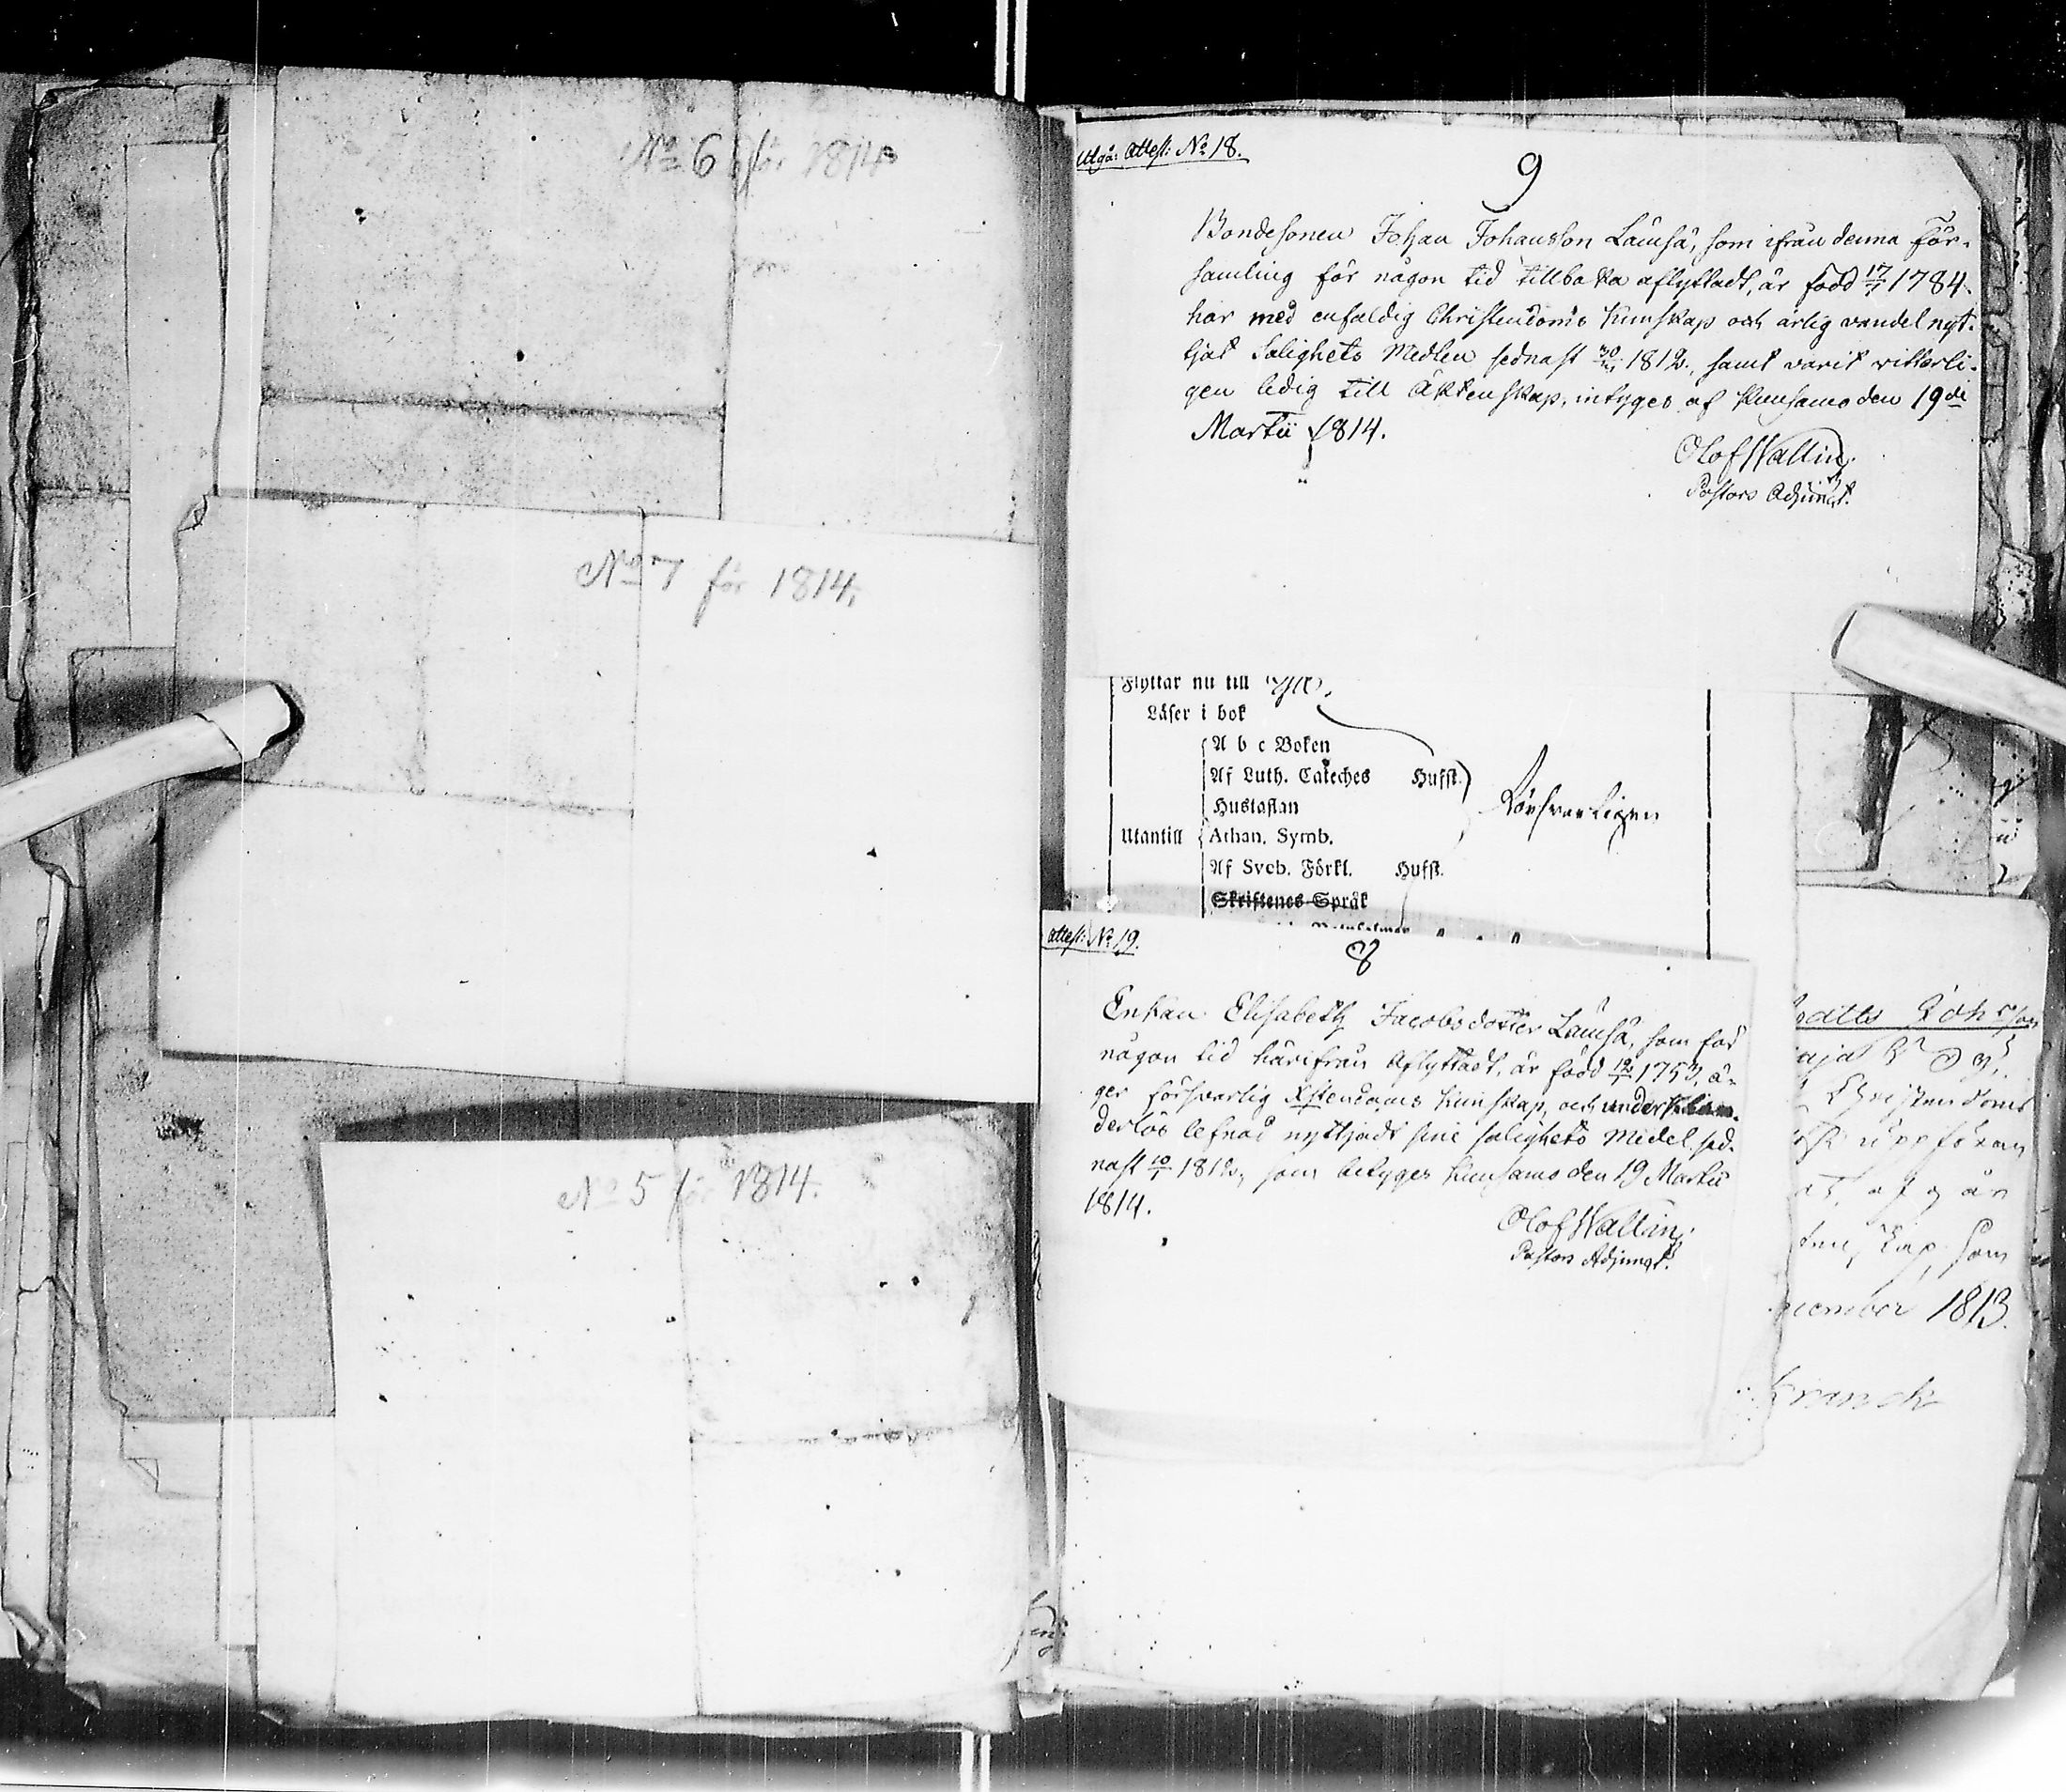 No 6 för 1814
No 7 för 1814.
No 5 för 1814.
Utgå: Attest: No 18.
9
Bondesonen Johan Johansson Lämsä, som ifrån denna För-
samling för någon tid tillbaka aflyttadt, är född 17/7 1784.
har med enfaldig Christendoms kunskap och ärlig vandel nyt-
tjat Salighets Medlen sednast 1812., samt varit vitterli-
gen ledig till Äktenskap, intyges af Kuusamo den 19de
Martii 1814.
Olof Wallin.
Pastors Adjunct.
Flyttar nu till
Läser i bok
A b c Boken
Af Luth. Cateches Hufst.
Hustaflan
Utantill Athan. Symb.
Försvarligen
Af Sveb. Förkl. Hufst.
Skriftenes Språk
Attest: No 19.
8
Enkan Elisabeth Jacobsdotter Lämsä, som för
någon tid härifrån aflyttadt, är född 1753, ä-
ger försvarlig Xstendoms kunskap, och
derlös lefnad nyttjadt sine salighets Medel sed-
nast 1812, som betyges Kuusamo den 19 Martii
1814.
Olof Wallin.
Pastors Adjunct.
Christendoms
uppföran
som
1813.